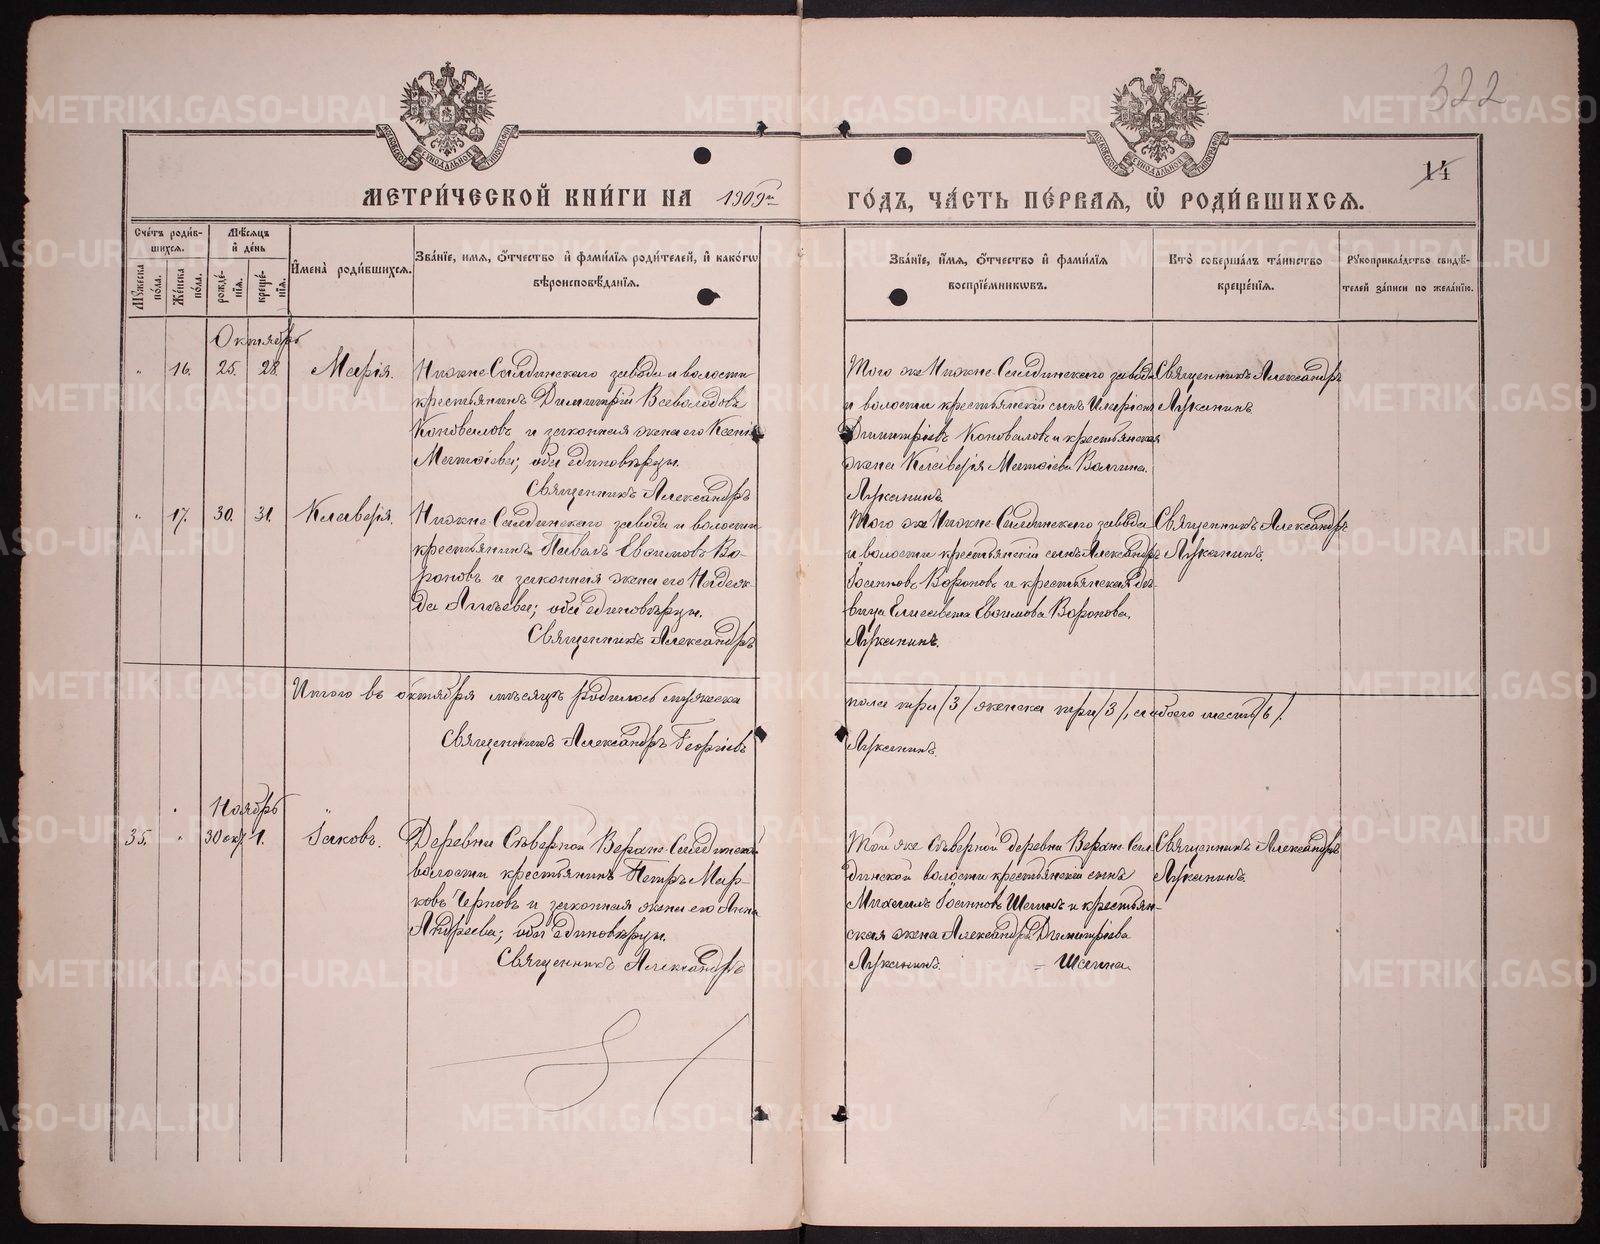 322
МОСКОВСКОЙ СѴНОДАЛЬНОЙ ТИПОГРАФІИ
МОСКОВСКОЙ СѴНОДАЛЬНОЙ ТИПОГРАФІИ
14
МЕТРИ́ЧЕСКОЙ КНИ́ГИ НА 1909й
ГО́ДЪ, ЧА́СТЬ ПЕ́РВАЯ, Ѽ РОДИ́ВШИХСЯ.
Сче́тъ роди́в-
шихся.
Му́жеска
по́ла.
Же́нска
по́ла.
Мѣ́сяцъ
и де́нь
рожде́-
нїя.
креще́-
нїя.
Имена̀ роди́вшихся.
Зва́нїе, имя, ѻ҆́тчество и҆ фами́лїя роди́телей, и҆ како́гѡ
вѣроисповѣ́данїя.
Зва́нїе, и҆́мя, ѻ҆́тчество и҆ фами́лїя
воспрїе́мникѡвъ.
Кто̀ соверша́лъ та́инство
креще́нїя.
Рꙋкоприкла́дство свидѣ́-
телей за́писи по жела́нїю.
Октябрь
" 16. 25. 28. Марія.
Нижне-Салдинскаго завода и волости
крестьянинъ Димитрій Всеволодовъ
Коновалов и законная жена его Ксенія
Матѳіева; оба единовѣрцы.
Священникъ Александръ
Того же Нижне-Салдинскаго завода
и волости крестьянскій сынъ Иларіон
Димитріевъ Коновалов и крестьянская
жена Клавдія Матѳіева Волгина.
Луканинъ.
Священникъ Александръ
Луканинъ
" 17. 30. 31. Клавдія.
Нижне-Салдинскаго завода и волости
крестьянинъ Павелъ Евѳимовъ Во-
роновъ и законная жена его Надеж-
да Ильева; оба единовѣрцы.
Священникъ Александръ
Того же Нижне-Салдинскаго завода
и волости крестьянскій сынъ Александр
Іосиповъ Вороновъ и крестьянская дѣ-
вица Елисавета Евѳимова Воронова.
Луканинъ.
Священникъ Александръ
Луканинъ.
Итого въ октябрѣ мѣсяцѣ родилось мужеска
пола три /3/ женска три /3/, а обоего шесть /6/.
Священникъ Александръ Георгіевъ
Луканинъ.
Ноябрь
35. " 30 окт. 1. Іаковъ.
Деревни Сѣверной Верхне-Салдинской
волости крестьянинъ Петръ Мар-
ковъ Черновъ и законная жена его Анна
Андреева; оба единовѣрцы.
Священникъ Александръ
Той же Сѣверной деревни Верхне-Сал-
динской волости крестьянскій сынъ
Михаилъ Іосиповъ Шеинъ и крестьян-
ская жена Александра Димитріева
Луканинъ. = Шеина.
Священникъ Александръ
Луканинъ
METRIKI.GASO-URAL.RU